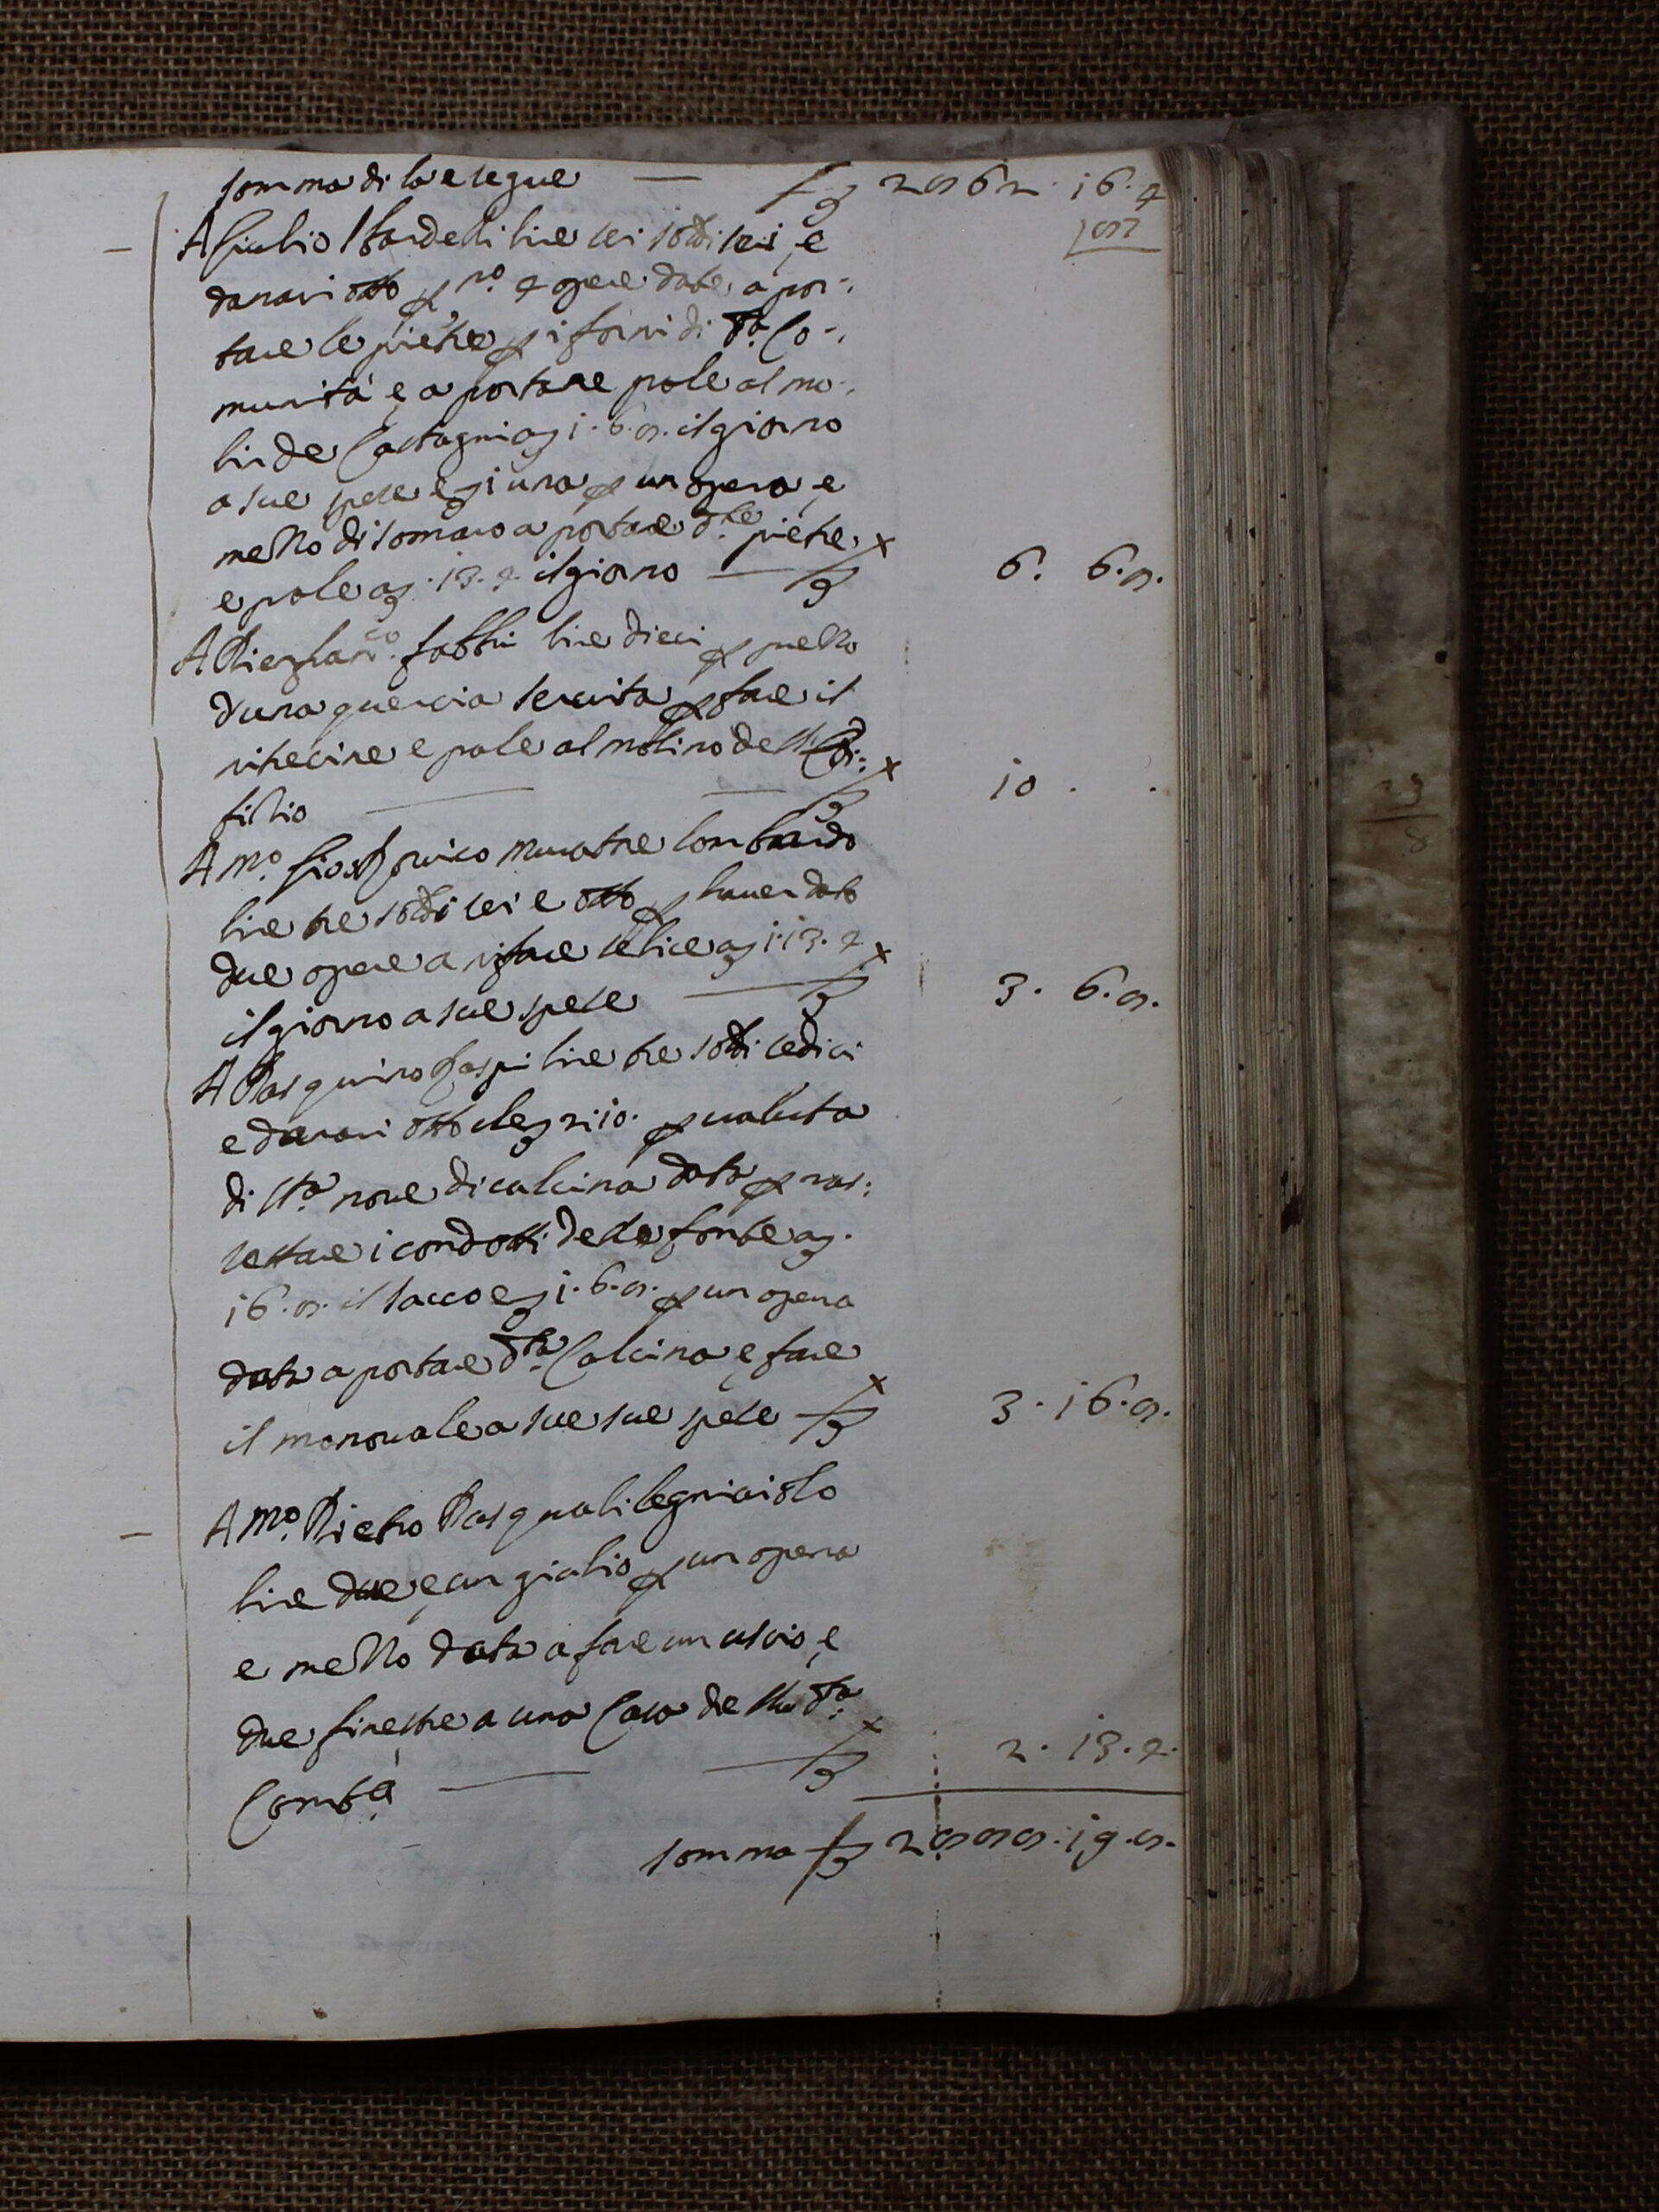 somma di là e segue — £ 2862. 16. 4
A Giulio Sbardelli lire sei soldi sei, e
danari otto p no. 4 opere date a por-
tare le pietre p i forni di da. Co-
munità e a portare pale al mo-
lin de Castagni a £ 1. 6. 8. il giorno
a sue spese e £ 1 una p un opera e
mezzo di somaro a portare de. pietre,
e pale a £ . 13. 4. il giorno — £ 6. 6. 8.
A Pierfranco. fabbri lire dieci p prezzo
duna quercia servita p fare il
ritrecine e pale al molino dell
fizio — £ 10 . .
A Mo. Gio: muratore lombardo
lire tre soldi sei e otto p haver dato
due opere a rifare selice a £ 1. 13. 4
il giorno a sue spese — £ 3. 6. 8.
A Pasquino Gaspi lire tre soldi sedici
e danari otto che £ 2. 10. p valuta
di sta. nove di calcina data p ras-
settare i condotti delle fonte a £.
16. 8. il sacco e £ 1. 6. 8. p un opera
data a portare dta. Calcina e fare
il manovale a sue sue spese £ 3. 16. 8.
A Mo. Pietro Pasquali legniaiolo
lire due e un giulio p un opera
e mezzo data a fare un uscio, e
due finestre a una Casa della da.
Comtà — £ 2. 13. 4.
somma £ 2888. 19. 8.